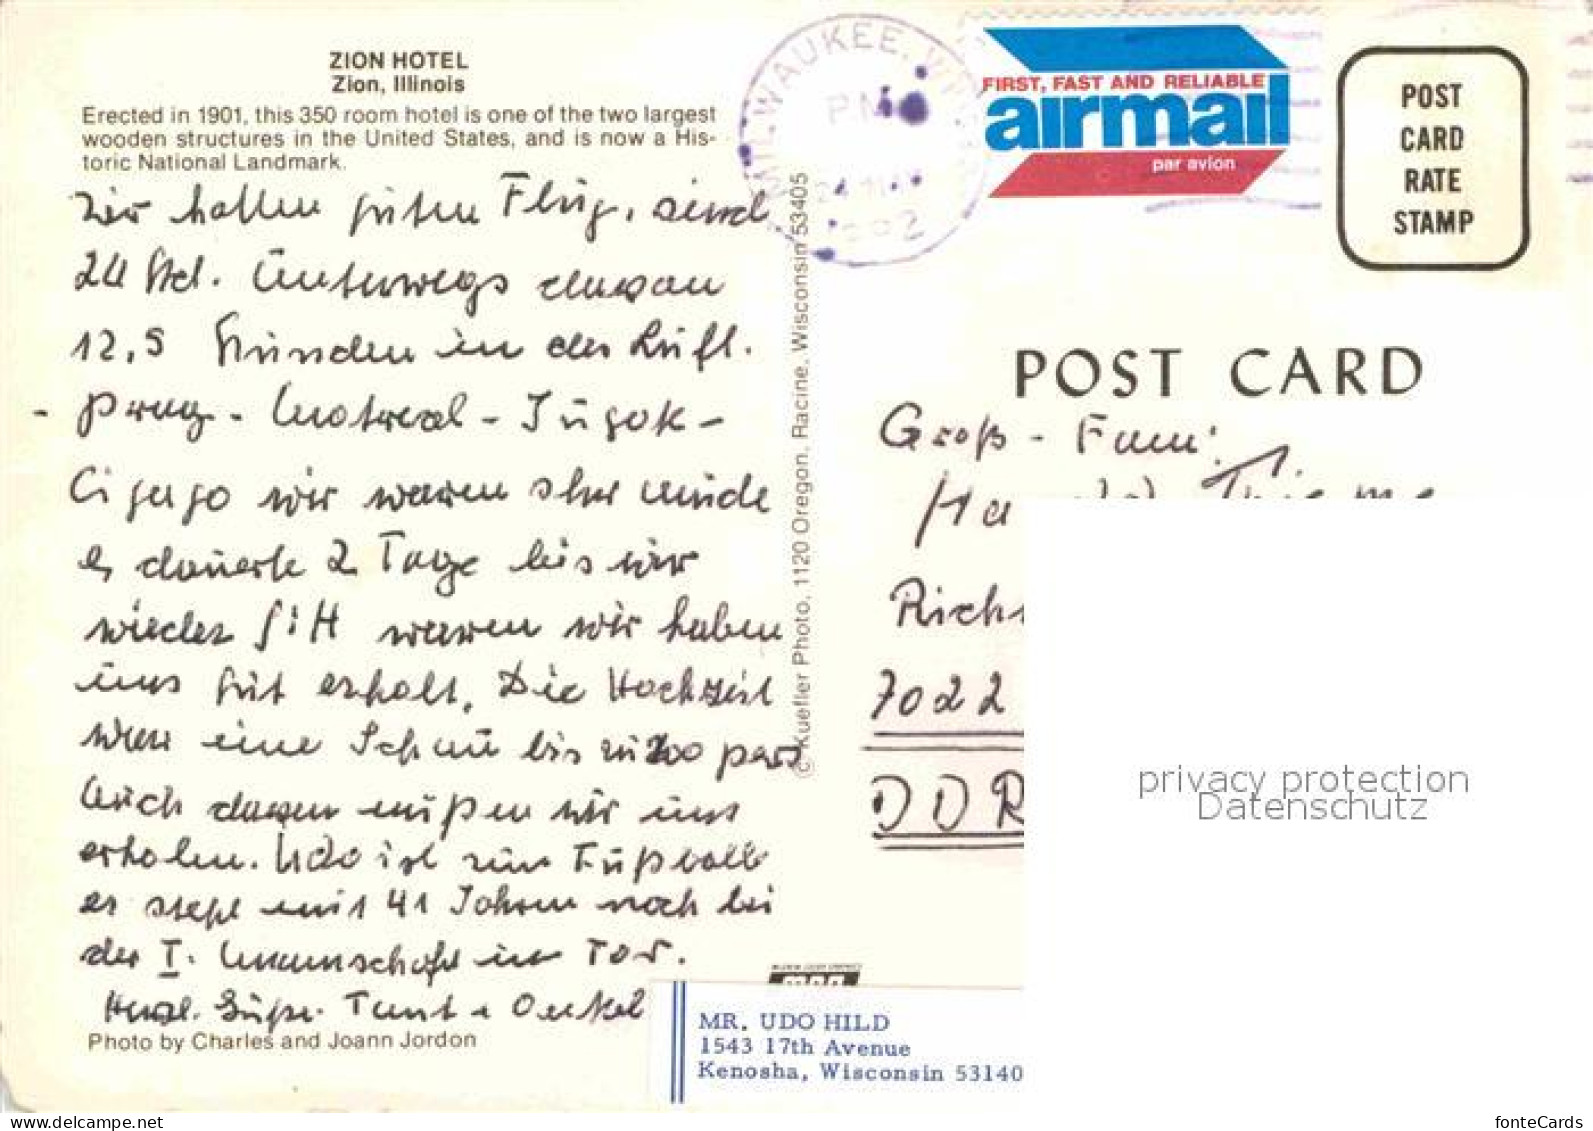 ZION HOTEL
Zion, Illinois
Erected in 1901, this 350 room hotel is one of the two largest
wooden structures in the United States, and is now a His-
toric National Landmark.
Wir hatten guten Flug, sind
24 Std. Unterwegs davon
12,5 Stunden in der Luft.
- Prag - Motreal -
wir waren sehr müde
es dauerte 2 Tage bis wir
wieder fit waren wir haben
uns gut erholt. Die Hochzeit
war eine Schau bis zu 200 pers
Auch davon mußen wir uns
erholen. Udo ist zum Fußball
er steht mit 41 Jahren noch bei
der I. Mannschaft im Tor.
Herzl. Grüße. Tante Onkel
Photo by Charles and Joann Jordon
© Kuefler Photo, 1120 Oregon, Racine, Wisconsin 53405
MILWAUKEE, WI
PM
24 MAY
FIRST, FAST AND RELIABLE
airmail
par avion
POST
CARD
RATE
STAMP
POST CARD
Groß - Fami
Thieme
Richt
7022
DDR
privacy protection
Datenschutz
MR. UDO HILD
1543 17th Avenue
Kenosha, Wisconsin 53140
delcampe.net
fonteCards